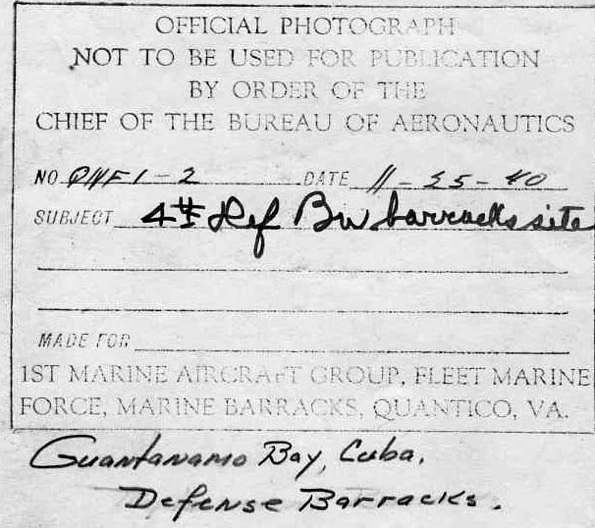 OFFICIAL PHOTOGRAPH
NOT TO BE USED FOR PUBLICATION
BY ORDER OF THE
CHIEF OF THE BUREAU OF AERONAUTICS
NO. 1-2 DATE 11-25-40
SUBJECT 4th Def Bn barracks site
MADE FOR
1ST MARINE AIRCRAFT GROUP, FLEET MARINE
FORCE, MARINE BARRACKS, QUANTICO, VA.
Guantanamo Bay, Cuba,
Defense Barracks.